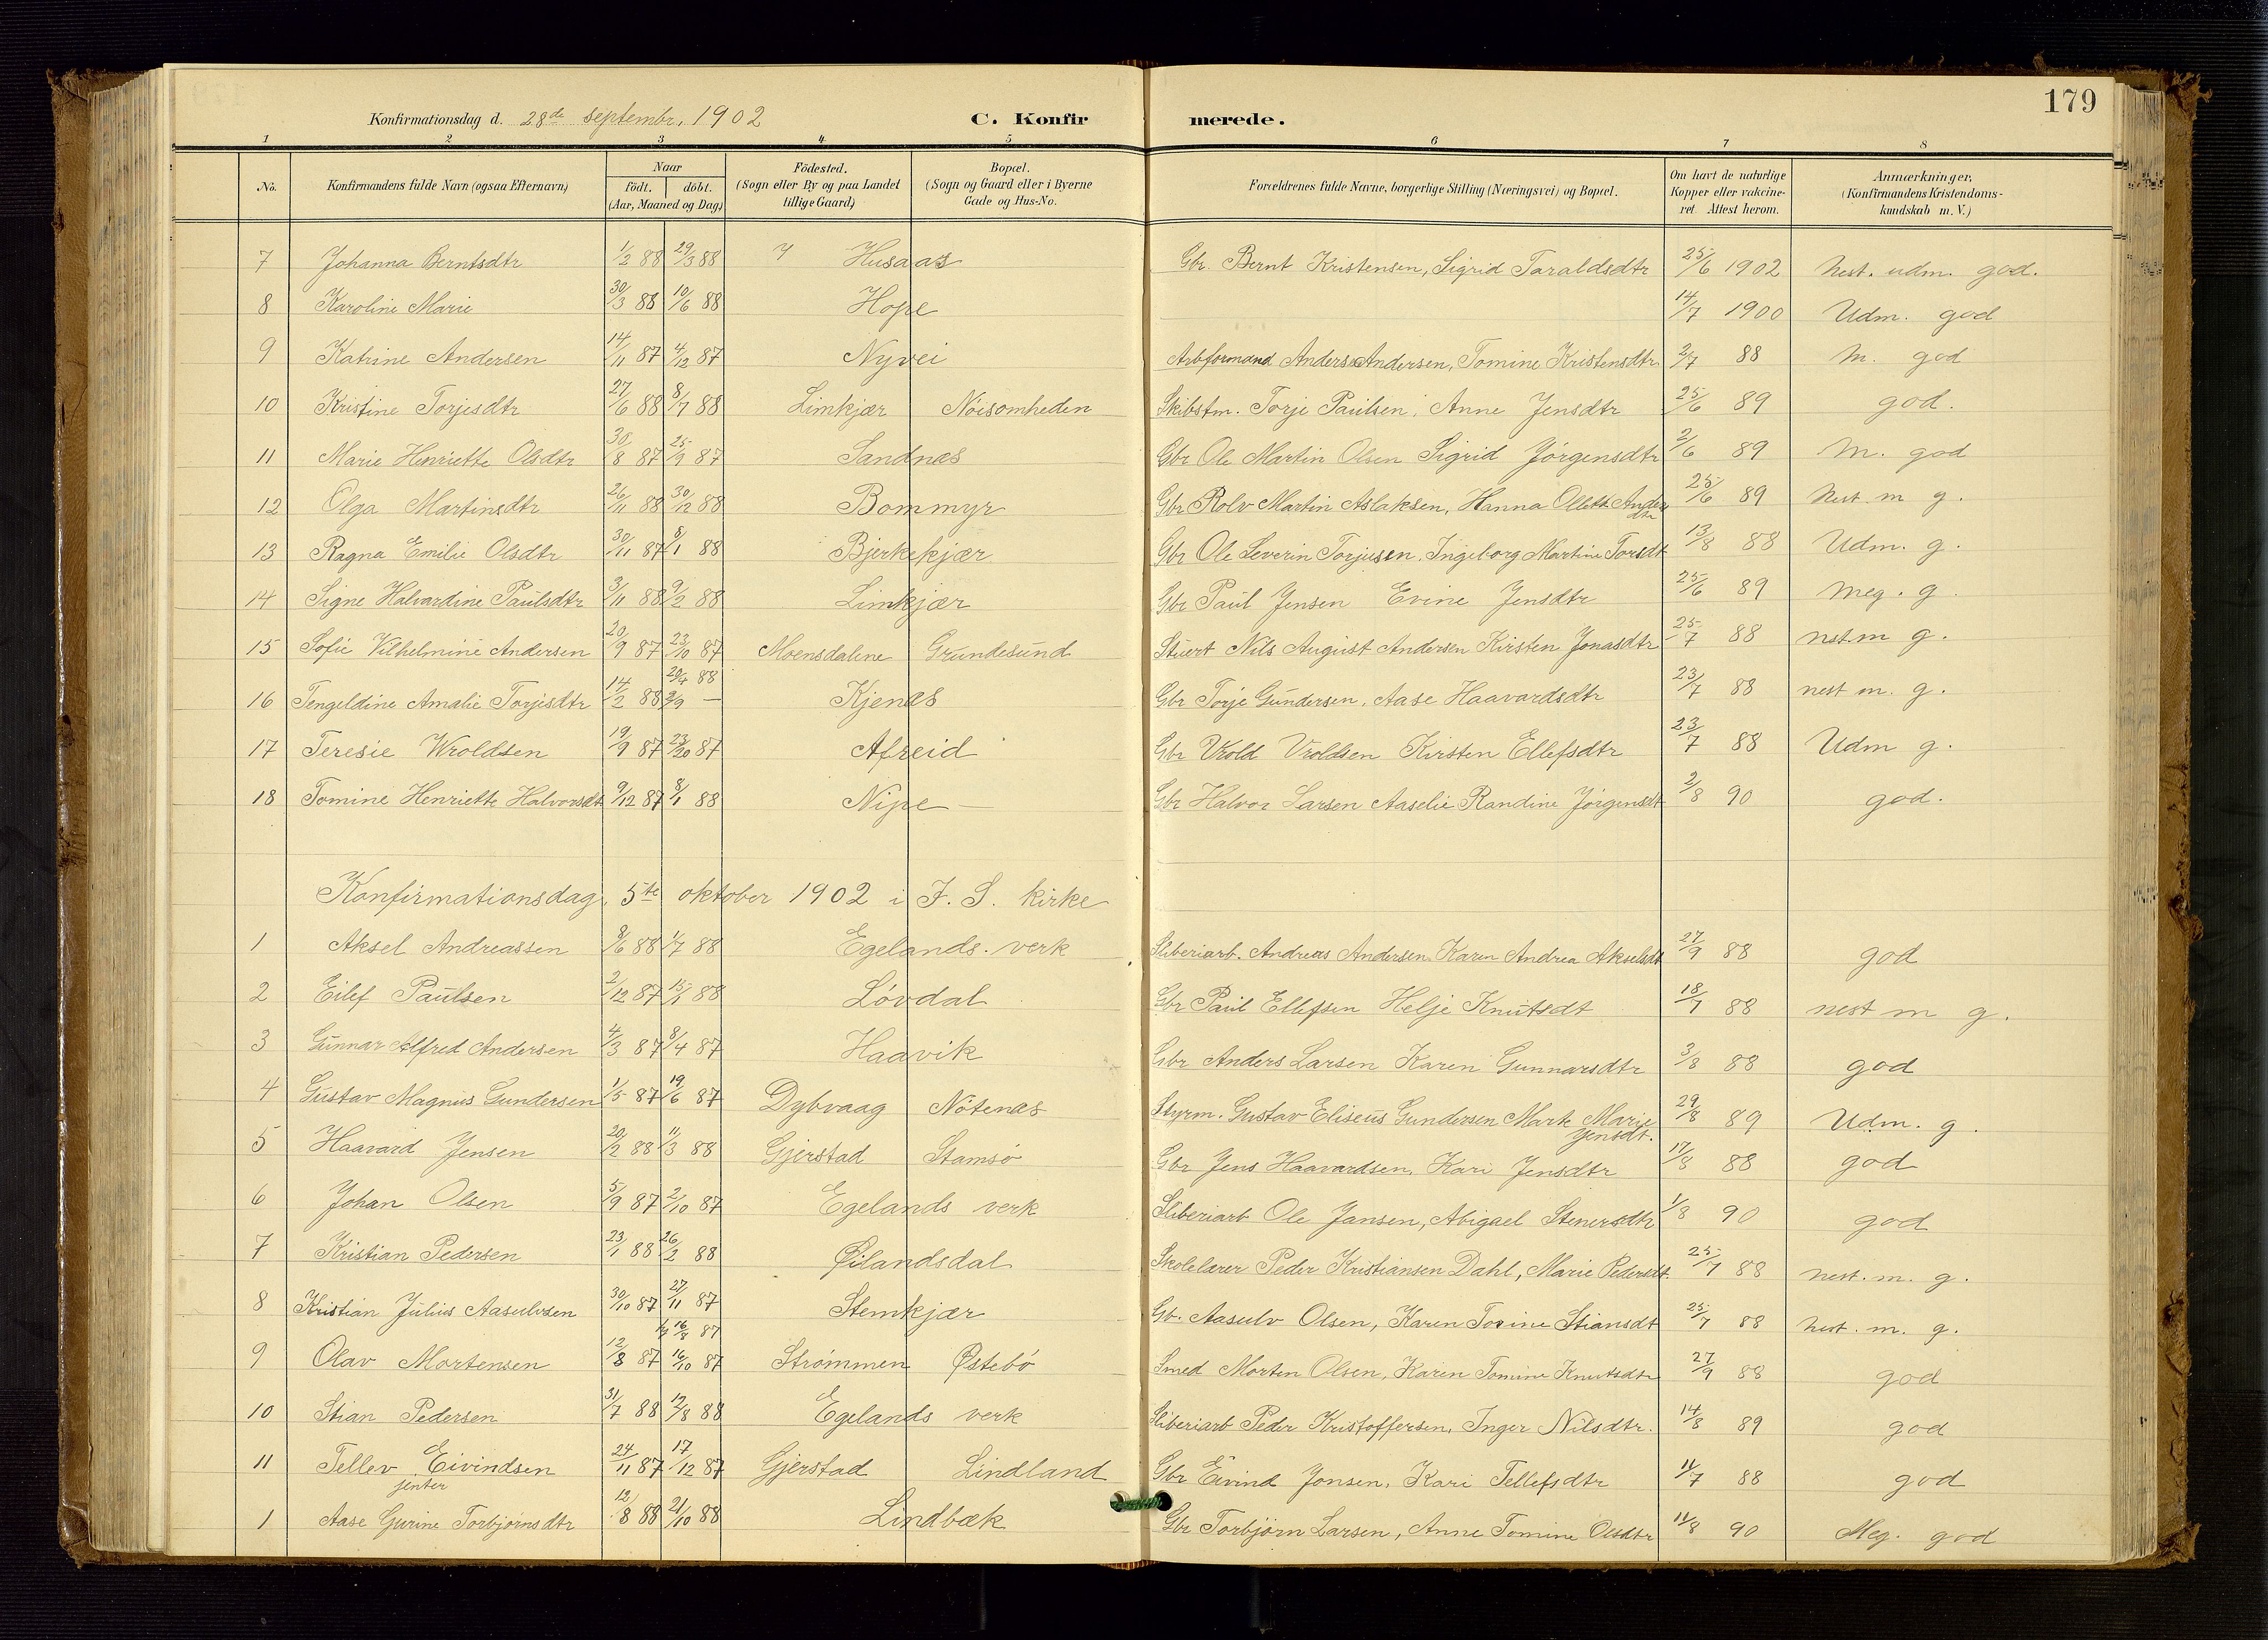 179
Konfirmationsdag d. 28de septembr. 1902 C. Konfirmerede.
1 2 3 4 5 6 7 8
No. Konfirmandens fulde Navn (ogsaa Efternavn) Naar födt. döbt. (Aar, Maaned og Dag) Födested. (Sogn eller By og paa Landet tillige Gaard) Bopæl. (Sogn og Gaard eller i Byerne Gade og Hus-No. Forældrenes fulde Navne, borgerlige Stilling (Næringsvei) og Bopæl. Om havt de naturlige Kopper eller vakcineret. Attest herom. Anmærkninger, (Konfirmandens Kristendomskundskab m. V.)
7 Johanna Berntsdtr 1/2 88 29/3 88 Husaas Gbr. Bernt Kristensen, Sigrid Taraldsdtr 25/6 1902 Nest. udm. god.
8 Karoline Marie 30/3 88 10/6 88 Hope 14/7 1900 Udm. god
9 Katrine Andersen 14/11 87 4/12 87 Nyvei Arbformand Anders Andersen, Tomine Kristensdtr 2/7 88 M. god
10 Kristine Torjesdtr 27/6 88 8/7 88 Limkjær Nöisomheden Skibstm. Torje Paulsen, Anne Jensdtr 25/6 89 god.
11 Marie Henriette Olsdtr 30/8 87 25/9 87 Sandnæs Gbr Ole Martin Olsen Sigrid Jörgensdtr 2/6 89 M. god
12 Olga Martinsdtr 26/11 88 30/12 88 Bommyr Gbr Rolv Martin Aslaksen, Hanna Olette Anders dtr 25/6 89 Nest m g.
13 Ragna Emilie Olsdtr 30/11 87 8/1 88 Bjerkekjær Gbr Ole Severin Torjusen, Ingeborg Martine Torsdt 13/8 88 Udm. g.
14 Signe Halvardine Paulsdtr 3/11 88 9/2 88 Limkjær Gbr Paul Jensen Evine Jensdtr 25/6 89 Meg. g.
15 Sofie Vilhelmine Andersen 20/9 87 23/10 87 Moensdalene Grundesund Stuert Nils August Andersen Kirsten Jonasdtr 25/7 88 nst. m g.
16 Tengeldine Amalie Torjesdtr 14/2 88 20/4 88 2/9 — Kjenæs Gbr Torje Gundersen, Aase Haavardsdtr 23/7 88 nest m. g.
17 Teresie Wroldsen 19/9 87 23/10 87 Afreid Gbr Vrold Vroldsen Kirsten Ellefsdtr 23/7 88 Udm g.
18 Tomine Henriette Halvorsdt 9/12 87 8/1 88 Nipe — Gbr Halvor Larsen Aaselie Randine Jörgensdt 2/8 90 god.
Konfirmationsdag 5te oktober 1902 i F. S. kirke
1 Aksel Andreassen 8/6 88 1/7 88 Egelands verk Sliberiarb. Andreas Andersen, Karen Andrea Akselsdt 27/9 88 god
2 Eilef Paulsen 2/12 87 15/1 88 Lövdal Gbr Paul Ellefsen Helje Knutsdt 18/7 88 nest m g.
3 Gunnar Alfred Andersen 4/3 87 8/4 87 Haavik Gbr Anders Larsen Karen Gunnarsdtr 3/8 88 god
4 Gustav Magnus Gundersen 1/5 87 19/6 87 Dybvaag Nötenæs Styrm. Gustav Eliseus Gundersen Mark Marie Jensdt. 29/8 89 Udm. g.
5 Haavard Jensen 20/2 88 11/3 88 Gjerstad Stamsö Gbr Jens Haavardsen, Kari Jensdtr 17/8 88 god
6 Johan Olsen 5/9 87 2/10 87 Egelands verk Sliberiarb Ole Jansen, Abigael Stenersdtr 1/8 90 god
7 Kristian Pedersen 23/1 88 26/2 88 Øilandsdal Skolelærer Peder Kristiansen Dahl, Marie Pedersdt. 25/7 88 nest. m. g.
8 Kristian Julius Aasulvsen 30/10 87 27/11 87 Stemkjær Gb. Aasulv Olsen, Karen Tomine Stiansdt 25/7 88 nest. m. g.
9 Olav Mortensen 12/8 87 16/8 87 16/10 87 Strømmen Østebö Smed Morten Olsen, Karen Tomine Knutsdtr 27/9 88 god
10 Stian Pedersen 31/7 88 12/8 88 Egelands verk Sliberiarb Peder Kristoffersen, Inger Nilsdtr. 14/8 89 god
11 Tellev Eivindsen 24/11 87 17/12 87 Gjerstad Lindland Gbr Eivind Jonsen, Kari Tellefsdtr 11/7 88 god
jenter
1 Aase Gurine Torbjörnsdtr 12/8 88 21/10 88 Lindbæk Gbr Torbjörn Larsen, Anne Tomine Olsdtr 11/8 90 Meg. god